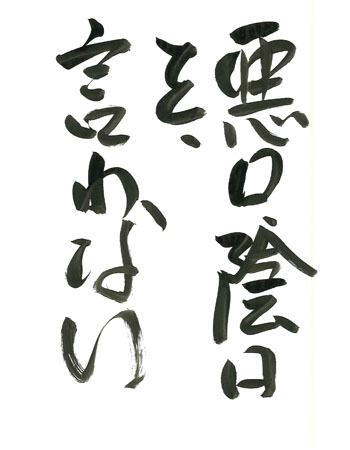 悪口陰口
を
言わない